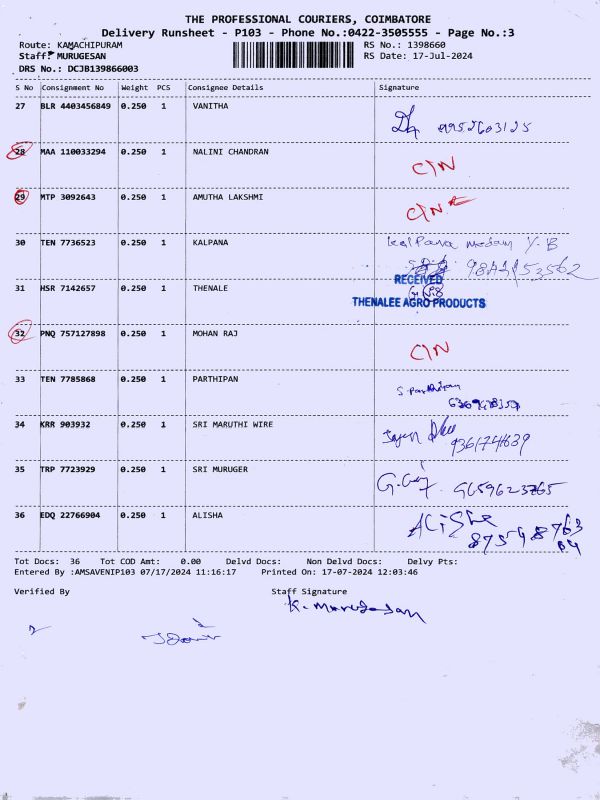 THE PROFESSIONAL COURIERS, COIMBATORE
Delivery Runsheet - P103 - Phone No.:0422-3505555 - Page No.:3
Route: KAMACHIPURAM RS No.: 1398660
Staff: MURUGESAN RS Date: 17-Jul-2024
DRS No.: DCJB139866003
S No Consignment No Weight PCS Consignee Details Signature
27 BLR 4403456849 0.250 1 VANITHA
9952603125
28 MAA 110033294 0.250 1 NALINI CHANDRAN
C/N
29 MTP 3092643 0.250 1 AMUTHA LAKSHMI
C/N
30 TEN 7736523 0.250 1 KALPANA
Kalpana medam Y.B
RECEIVED
31 HSR 7142657 0.250 1 THENALE
THENALEE AGRO PRODUCTS
32 PNQ 757127898 0.250 1 MOHAN RAJ
C/N
33 TEN 7785868 0.250 1 PARTHIPAN
34 KRR 903932 0.250 1 SRI MARUTHI WIRE
35 TRP 7723929 0.250 1 SRI MURUGER
36 EDQ 22766904 0.250 1 ALISHA
Tot Docs: 36 Tot COD Amt: 0.00 Delvd Docs: Non Delvd Docs: Delvy Pts:
Entered By :AMSAVENIP103 07/17/2024 11:16:17 Printed On: 17-07-2024 12:03:46
Verified By Staff Signature